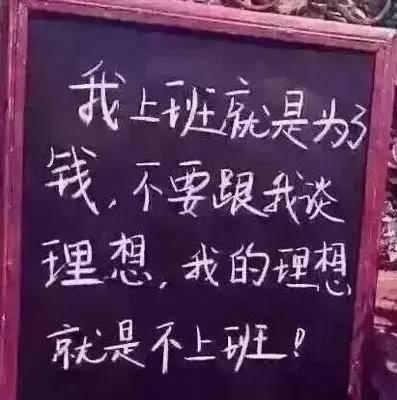 我上班就是为了
钱，不要跟我谈
理想，我的理想
就是不上班！